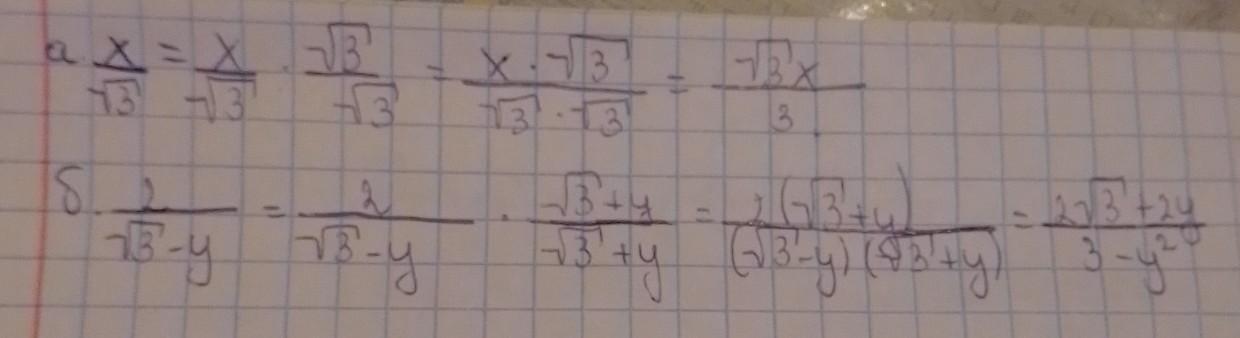 а. x/√3 = x/√3 · √3/√3 = x·√3/√3·√3 = √3x/3
б. 2/√3-y = 2/√3-y · √3+y/√3+y = 2(√3+y)/(√3-y)(√3+y) = 2√3+2y/3-y²